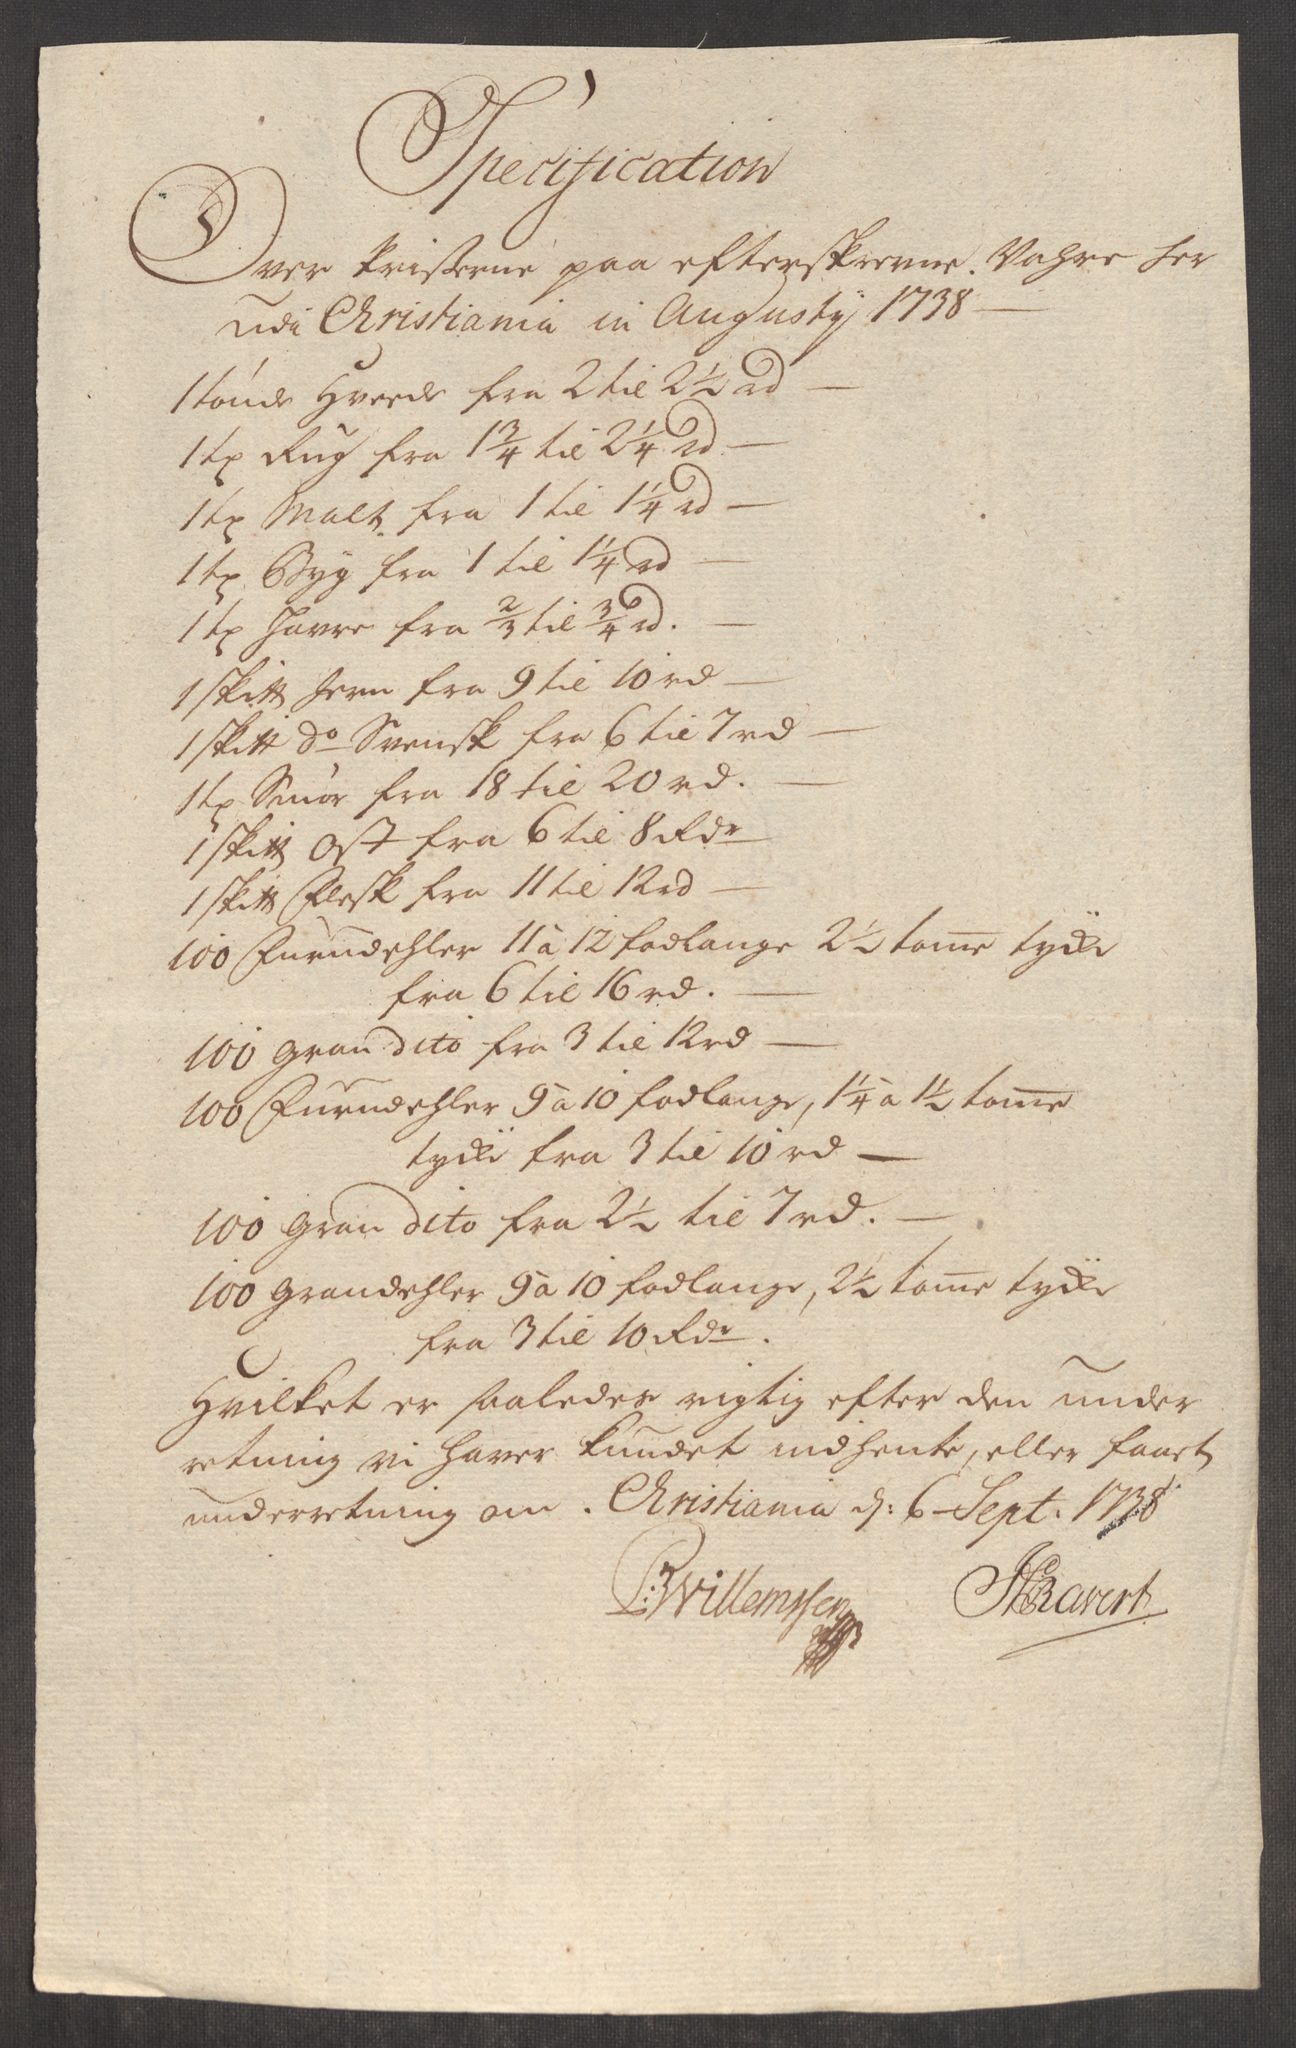 Specification
Over Prisserne paa efterskrevne Vahre her
udi Christiania in Augusty 1738
1 tønde Hveede fra 2 til 2½ rd
1 tp Rug fra 1¾ til 2¼ rd
1 tp Malt fra 1 til 1¼ rd
1 tp Byg fra 1 til 1¼ rd
1 tp Havre fra ⅔ til ¾ rd.
1 skitt Jern fra 9 til 10 rd
1 skitt do Svensk fra 6 til 7 rd
1 tp Smør fra 18 til 20 rd.
1 skitt Ost fra 6 til 8 Rdr
1 skitt Flesk fra 11 til 12 rd
100 Furudehler 11 à 12 fodlange 2½ tome tycke
fra 6 til 16 rd.
100 gran dito fra 3 til 12 rd
100 Furudehler 9 à 10 fodlange, 1¼ à 1½ tome
tycke fra 3 til 10 rd
100 gran dito fra 2½ til 7 rd.
100 grandehler 9 à 10 fodlange, 2½ tome tycke
fra 3 til 10 Rdr.
Hvilket er saaledes rigtig efter den under
retning vi haver kundet indhente, eller faaet
underretning om. Christiania d: 6 Sept. 1738
P: Willemssen
Ravert